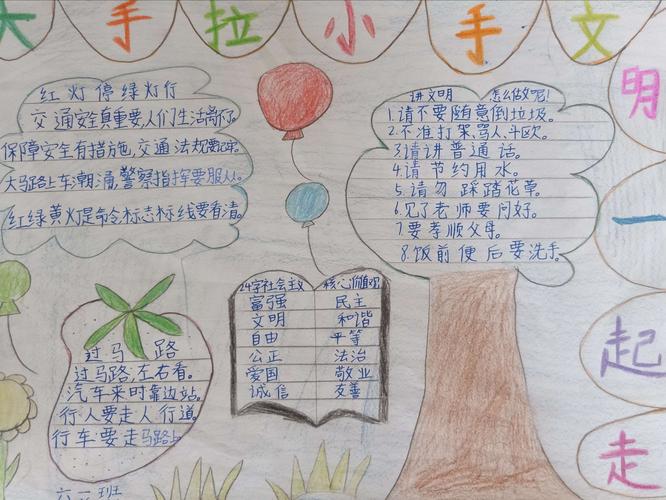 大手拉小手文
明
一
起
走
红灯停绿灯行
交通安全真重要,人们生活离不
保障安全有措施,交通法规要记牢。
大马路上车潮涌,警察指挥要服从。
红绿黄灯是命令标志标线要看清。
讲文明 怎么做呢!
1.请不要随意倒垃圾。
2.不准打架,骂人,斗殴。
3.请讲普通话。
4.请节约用水。
5.请勿踩踏花草。
6.见了老师要问好。
7.要孝顺父母。
8.饭前便后要洗手。
24字社会主义 核心价值观
富强 民主
文明 和谐
自由 平等
公正 法治
爱国 敬业
诚信 友善
过马路
过马路,左右看。
汽车来时靠边站。
行人要走人行道。
行车要走马路上
六二班